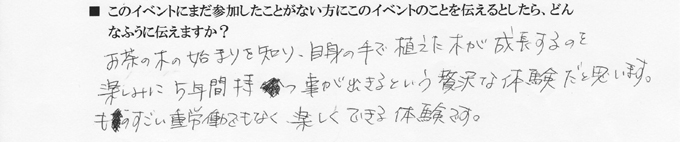 ■ このイベントにまだ参加したことがない方にこのイベントのことを伝えるとしたら、どん
なふうに伝えますか？
お茶の木の始まりを知り、自身の手で植えた木が成長するのを
楽しみに5年間待つ事が出きるという贅沢な体験だと思います。
ものすごい重労働でもなく、楽しくできる体験です。